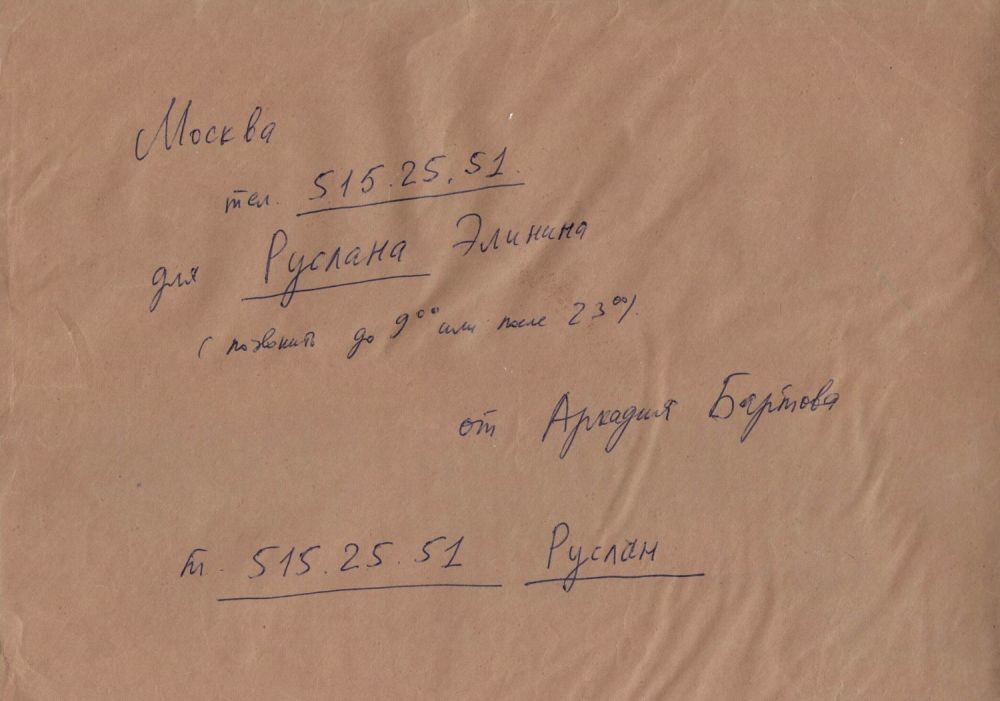 Москва
тел. 515.25.51.
для Руслана Элинина
(позвонить до 9⁰⁰ или после 23⁰⁰).
от Аркадия Бартова
т. 515.25.51 Руслан